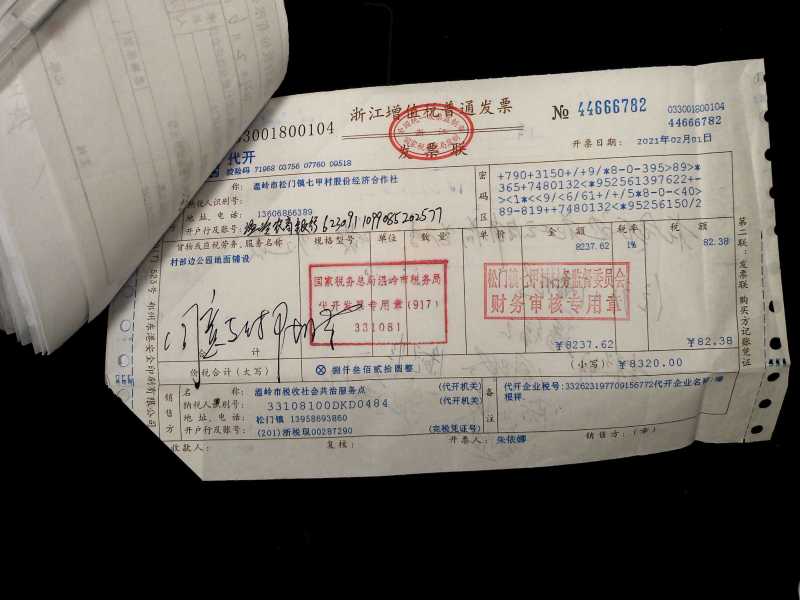 浙江增值税普通发票
发票联
033001800104
№ 44666782
033001800104
44666782
代开
校验码 71968 03756 07760 09518
开票日期: 2021年02月01日
名 称: 温岭市松门镇七甲村股份经济合作社
纳税人识别号:
地 址、电 话: 13606866389
开户行及账号: 6230911099085202577
密码区
+790+3150+/+9/*8-0-395>89>*
365+7480132<*952561397622+-
><1*<<9/<6/61+/+5/*8-0-<40>
89-819++7480132<*95256150/2
货物或应税劳务、服务名称 规格型号 单位 数量 单价 金额 税率 税额
村部边公园地面铺设 8237.62 1% 82.38
国家税务总局温岭市税务局
代开发票专用章(917)
331081
财务审核专用章
计 ¥8237.62 ¥82.38
价税合计(大写) ⊗ 捌仟叁佰贰拾圆整 (小写) ¥8320.00
销售方
名 称: 温岭市税收社会共治服务点 (代开机关)
纳税人识别号: 33108100DKD0484 (代开机关)
地 址、电 话: 松门镇 13958693860
开户行及账号: (201)浙税现00287290 (完税凭证号)
备注
代开企业税号:332623197709156772代开企业名称:
收款人: 复核: 开票人: 朱依娜 销售方:(章)
第二联:发票联 购买方记账凭证